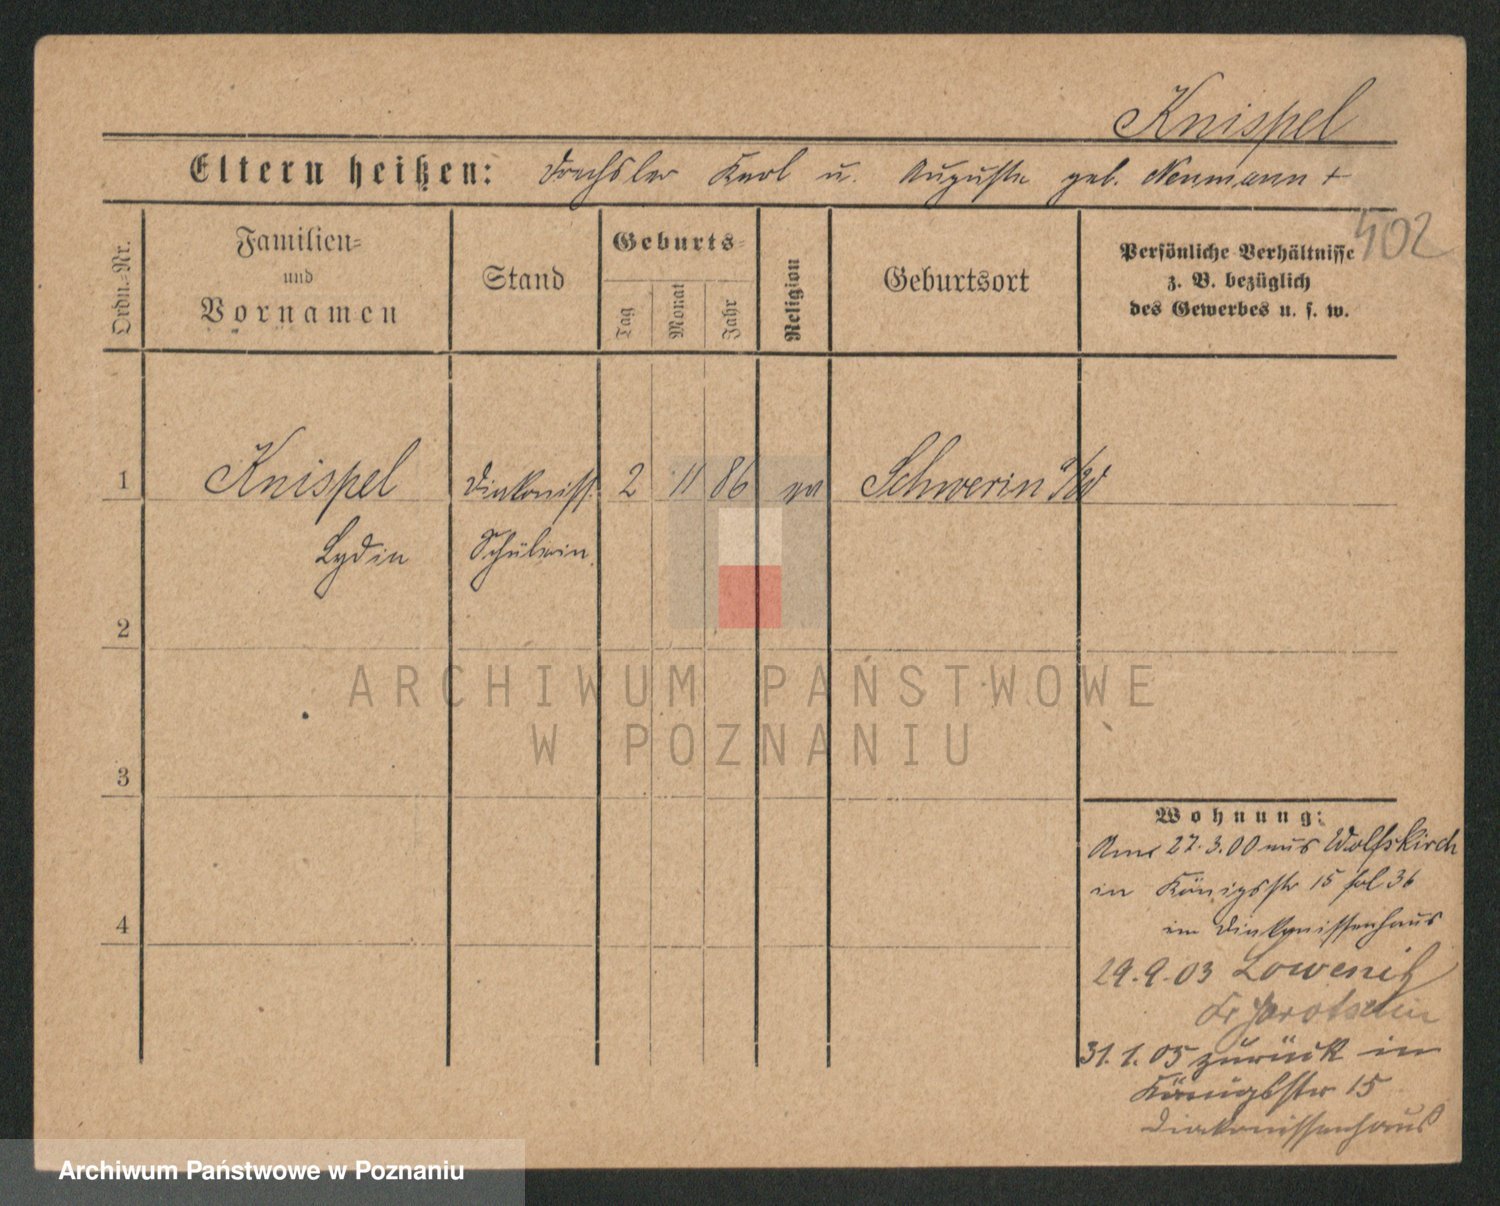 Knispel
Eltern heißen: Drechsler Karl u. Auguste geb. Neumann +
502
Ordn.-Nr.
Familien-
und
Vornamen
Stand
Geburts-
Tag
Monat
Jahr
Religion
Geburtsort
Persönliche Verhältnisse
z. B. bezüglich
des Gewerbes u. s. w.
1 Knispel Diakoniss. 2 11 86 ev Schwerin a/W
Lydia Schülerin
2
3
4
Wohnung:
Anm 27.3.00 aus Wolfskirch
in Königsstr 15 fol 36
im Diakonissenhaus
29.9.03 Lowenitz
Kr Jarotschin
31.1.05 zurück in
Königsstr 15
Diakonissenhaus
ARCHIWUM PAŃSTWOWE
W POZNANIU
Archiwum Państwowe w Poznaniu